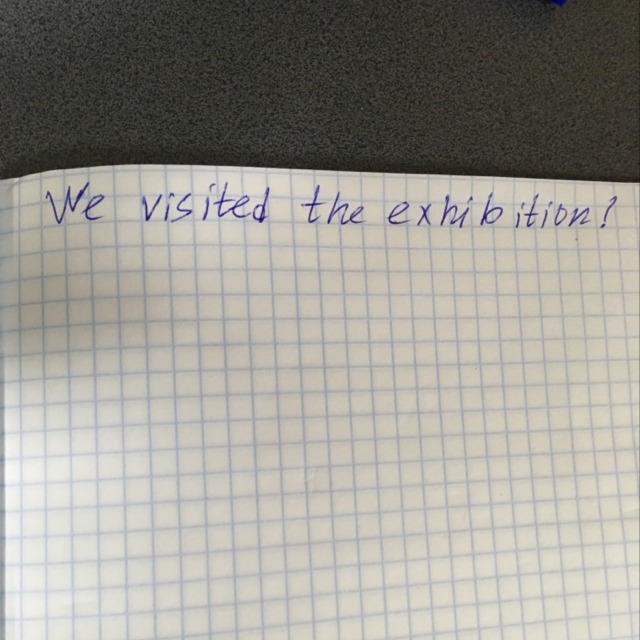 We visited the exhibition!